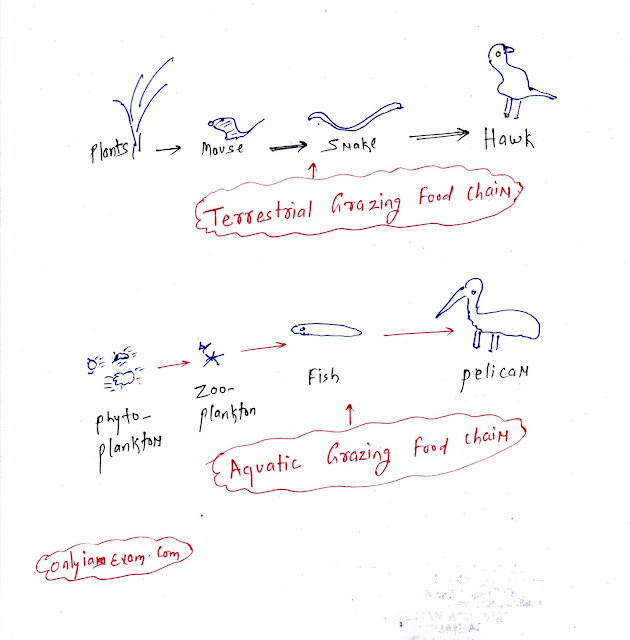 Plants → Mouse → Snake → Hawk
Terrestrial Grazing Food Chain
Phyto-
plankton
Zoo-
plankton
Fish
Pelican
Aquatic Grazing Food Chain
onlyiasExam.com